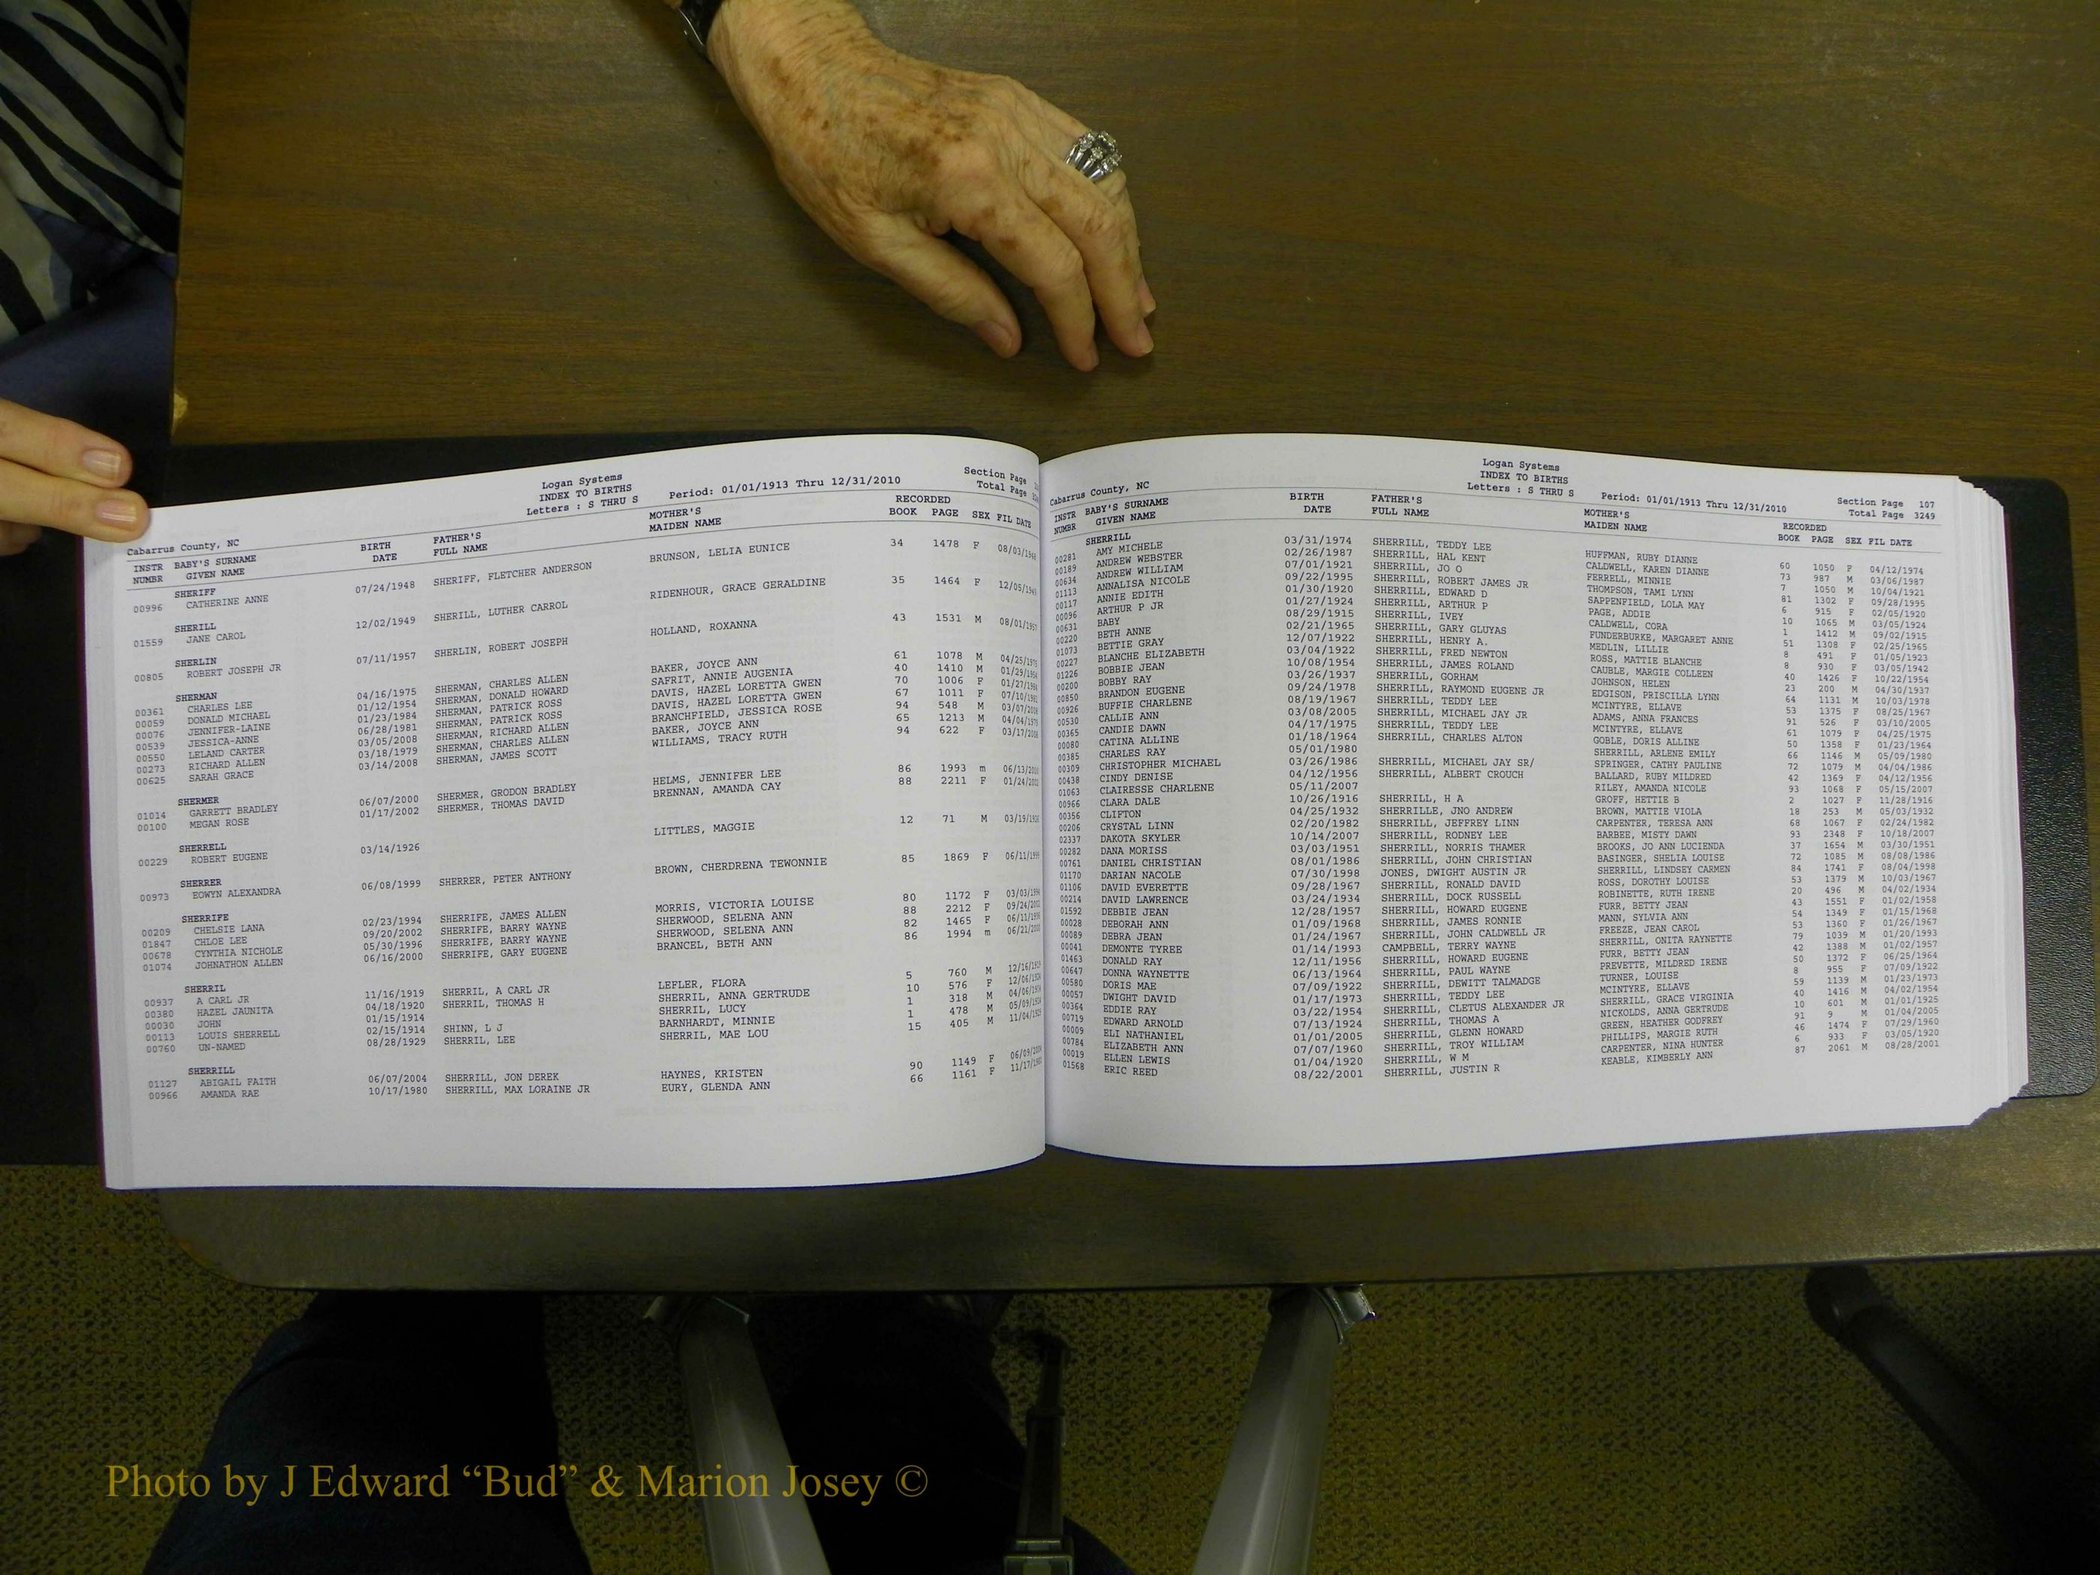 Logan Systems
INDEX TO BIRTHS
Letters : S THRU S
Period: 01/01/1913 Thru 12/31/2010
Section Page
Total Page
Cabarrus County, NC
INSTR BABY'S SURNAME BIRTH FATHER'S MOTHER'S RECORDED
NUMBR GIVEN NAME DATE FULL NAME MAIDEN NAME BOOK PAGE SEX FIL DATE
SHERIFF
00996 CATHERINE ANNE 07/24/1948 SHERIFF, FLETCHER ANDERSON BRUNSON, LELIA EUNICE 34 1478 F 08/03/1948
SHERILL
01559 JANE CAROL 12/02/1949 SHERILL, LUTHER CARROL RIDENHOUR, GRACE GERALDINE 35 1464 F 12/05/1949
SHERLIN
00805 ROBERT JOSEPH JR 07/11/1957 SHERLIN, ROBERT JOSEPH HOLLAND, ROXANNA 43 1531 M 08/01/1957
SHERMAN
00361 CHARLES LEE 04/16/1975 SHERMAN, CHARLES ALLEN BAKER, JOYCE ANN 61 1078 M 04/25/1975
00059 DONALD MICHAEL 01/12/1954 SHERMAN, DONALD HOWARD SAFRIT, ANNIE AUGENIA 40 1410 M 01/29/1954
00076 JENNIFER-LAINE 01/23/1984 SHERMAN, PATRICK ROSS DAVIS, HAZEL LORETTA GWEN 70 1006 F 01/27/1984
00539 JESSICA-ANNE 06/28/1981 SHERMAN, PATRICK ROSS DAVIS, HAZEL LORETTA GWEN 67 1011 F 07/10/1981
00550 LELAND CARTER 03/05/2008 SHERMAN, RICHARD ALLEN BRANCHFIELD, JESSICA ROSE 94 548 M 03/07/2008
00273 RICHARD ALLEN 03/18/1979 SHERMAN, CHARLES ALLEN BAKER, JOYCE ANN 65 1213 M 04/04/1979
00625 SARAH GRACE 03/14/2008 SHERMAN, JAMES SCOTT WILLIAMS, TRACY RUTH 94 622 F 03/17/2008
SHERMER
01014 GARRETT BRADLEY 06/07/2000 SHERMER, GRODON BRADLEY HELMS, JENNIFER LEE 86 1993 m 06/13/2000
00100 MEGAN ROSE 01/17/2002 SHERMER, THOMAS DAVID BRENNAN, AMANDA CAY 88 2211 F 01/24/2002
SHERRELL
00229 ROBERT EUGENE 03/14/1926 LITTLES, MAGGIE 12 71 M 03/19/1926
SHERRER
00973 EOWYN ALEXANDRA 06/08/1999 SHERRER, PETER ANTHONY BROWN, CHERDRENA TEWONNIE 85 1869 F 06/11/1999
SHERRIFE
00209 CHELSIE LANA 02/23/1994 SHERRIFE, JAMES ALLEN MORRIS, VICTORIA LOUISE 80 1172 F 03/03/1994
01847 CHLOE LEE 09/20/2002 SHERRIFE, BARRY WAYNE SHERWOOD, SELENA ANN 88 2212 F 09/24/2002
00678 CYNTHIA NICHOLE 05/30/1996 SHERRIFE, BARRY WAYNE SHERWOOD, SELENA ANN 82 1465 F 06/11/1996
01074 JOHNATHON ALLEN 06/16/2000 SHERRIFE, GARY EUGENE BRANCEL, BETH ANN 86 1994 m 06/21/2000
SHERRIL
00937 A CARL JR 11/16/1919 SHERRIL, A CARL JR LEFLER, FLORA 5 760 M 12/16/1919
00380 HAZEL JAUNITA 04/18/1920 SHERRIL, THOMAS H SHERRIL, ANNA GERTRUDE 10 576 F 12/06/1924
00030 JOHN 01/15/1914 SHERRIL, LUCY 1 318 M 04/06/1914
00113 LOUIS SHERRELL 02/15/1914 SHINN, L J BARNHARDT, MINNIE 1 478 M 05/09/1914
00760 UN-NAMED 08/28/1929 SHERRIL, LEE SHERRIL, MAE LOU 15 405 M 11/04/1929
SHERRILL
01127 ABIGAIL FAITH 06/07/2004 SHERRILL, JON DEREK HAYNES, KRISTEN 90 1149 F 06/09/2004
00966 AMANDA RAE 10/17/1980 SHERRILL, MAX LORAINE JR EURY, GLENDA ANN 66 1161 F 11/17/1980
Logan Systems
INDEX TO BIRTHS
Letters : S THRU S
Period: 01/01/1913 Thru 12/31/2010
Section Page 107
Total Page 3249
Cabarrus County, NC
INSTR BABY'S SURNAME BIRTH FATHER'S MOTHER'S RECORDED
NUMBR GIVEN NAME DATE FULL NAME MAIDEN NAME BOOK PAGE SEX FIL DATE
SHERRILL
00281 AMY MICHELE 03/31/1974 SHERRILL, TEDDY LEE HUFFMAN, RUBY DIANNE 60 1050 F 04/12/1974
00189 ANDREW WEBSTER 02/26/1987 SHERRILL, HAL KENT CALDWELL, KAREN DIANNE 73 987 M 03/06/1987
00634 ANDREW WILLIAM 07/01/1921 SHERRILL, JO O FERRELL, MINNIE 7 1050 M 10/04/1921
01113 ANNALISA NICOLE 09/22/1995 SHERRILL, ROBERT JAMES JR THOMPSON, TAMI LYNN 81 1302 F 09/28/1995
00117 ANNIE EDITH 01/30/1920 SHERRILL, EDWARD D SAPPENFIELD, LOLA MAY 6 915 F 02/05/1920
00096 ARTHUR P JR 01/27/1924 SHERRILL, ARTHUR P PAGE, ADDIE 10 1065 M 03/05/1924
00631 BABY 08/29/1915 SHERRILL, IVEY CALDWELL, CORA 1 1412 M 09/02/1915
00220 BETH ANNE 02/21/1965 SHERRILL, GARY GLUYAS FUNDERBURKE, MARGARET ANNE 51 1308 F 02/25/1965
01073 BETTIE GRAY 12/07/1922 SHERRILL, HENRY A. MEDLIN, LILLIE 8 491 F 01/05/1923
00227 BLANCHE ELIZABETH 03/04/1922 SHERRILL, FRED NEWTON ROSS, MATTIE BLANCHE 8 930 F 03/05/1942
01226 BOBBIE JEAN 10/08/1954 SHERRILL, JAMES ROLAND CAUBLE, MARGIE COLLEEN 40 1426 F 10/22/1954
00200 BOBBY RAY 03/26/1937 SHERRILL, GORHAM JOHNSON, HELEN 23 200 M 04/30/1937
00850 BRANDON EUGENE 09/24/1978 SHERRILL, RAYMOND EUGENE JR EDGISON, PRISCILLA LYNN 64 1131 M 10/03/1978
00926 BUFFIE CHARLENE 08/19/1967 SHERRILL, TEDDY LEE MCINTYRE, ELLAVE 53 1375 F 08/25/1967
00530 CALLIE ANN 03/08/2005 SHERRILL, MICHAEL JAY JR ADAMS, ANNA FRANCES 91 526 F 03/10/2005
00365 CANDIE DAWN 04/17/1975 SHERRILL, TEDDY LEE MCINTYRE, ELLAVE 61 1079 F 04/25/1975
00080 CATINA ALLINE 01/18/1964 SHERRILL, CHARLES ALTON GOBLE, DORIS ALLINE 50 1358 F 01/23/1964
00385 CHARLES RAY 05/01/1980 SHERRILL, ARLENE EMILY 66 1146 M 05/09/1980
00309 CHRISTOPHER MICHAEL 03/26/1986 SHERRILL, MICHAEL JAY SR/ SPRINGER, CATHY PAULINE 72 1079 M 04/04/1986
00438 CINDY DENISE 04/12/1956 SHERRILL, ALBERT CROUCH BALLARD, RUBY MILDRED 42 1369 F 04/12/1956
01063 CLAIRESSE CHARLENE 05/11/2007 RILEY, AMANDA NICOLE 93 1068 F 05/15/2007
00966 CLARA DALE 10/26/1916 SHERRILL, H A GROFF, HETTIE B 2 1027 F 11/28/1916
00356 CLIFTON 04/25/1932 SHERRILLE, JNO ANDREW BROWN, MATTIE VIOLA 18 253 M 05/03/1932
00206 CRYSTAL LINN 02/20/1982 SHERRILL, JEFFREY LINN CARPENTER, TERESA ANN 68 1067 F 02/24/1982
02337 DAKOTA SKYLER 10/14/2007 SHERRILL, RODNEY LEE BARBEE, MISTY DAWN 93 2348 F 10/18/2007
00282 DANA MORISS 03/03/1951 SHERRILL, NORRIS THAMER BROOKS, JO ANN LUCIENDA 37 1654 M 03/30/1951
00761 DANIEL CHRISTIAN 08/01/1986 SHERRILL, JOHN CHRISTIAN BASINGER, SHELIA LOUISE 72 1085 M 08/08/1986
01170 DARIAN NACOLE 07/30/1998 JONES, DWIGHT AUSTIN JR SHERRILL, LINDSEY CARMEN 84 1741 F 08/04/1998
01106 DAVID EVERETTE 09/28/1967 SHERRILL, RONALD DAVID ROSS, DOROTHY LOUISE 53 1379 M 10/03/1967
00214 DAVID LAWRENCE 03/24/1934 SHERRILL, DOCK RUSSELL ROBINETTE, RUTH IRENE 20 496 M 04/02/1934
01592 DEBBIE JEAN 12/28/1957 SHERRILL, HOWARD EUGENE FURR, BETTY JEAN 43 1551 F 01/02/1958
00028 DEBORAH ANN 01/09/1968 SHERRILL, JAMES RONNIE MANN, SYLVIA ANN 54 1349 F 01/15/1968
00089 DEBRA JEAN 01/24/1967 SHERRILL, JOHN CALDWELL JR FREEZE, JEAN CAROL 53 1360 F 01/26/1967
00041 DEMONTE TYREE 01/14/1993 CAMPBELL, TERRY WAYNE SHERRILL, ONITA RAYNETTE 79 1039 M 01/20/1993
01463 DONALD RAY 12/11/1956 SHERRILL, HOWARD EUGENE FURR, BETTY JEAN 42 1388 M 01/02/1957
00647 DONNA WAYNETTE 06/13/1964 SHERRILL, PAUL WAYNE PREVETTE, MILDRED IRENE 50 1372 F 06/25/1964
00580 DORIS MAE 07/09/1922 SHERRILL, DEWITT TALMADGE TURNER, LOUISE 8 955 F 07/09/1922
00057 DWIGHT DAVID 01/17/1973 SHERRILL, TEDDY LEE MCINTYRE, ELLAVE 59 1139 M 01/23/1973
00364 EDDIE RAY 03/22/1954 SHERRILL, CLETUS ALEXANDER JR SHERRILL, GRACE VIRGINIA 40 1416 M 04/02/1954
00719 EDWARD ARNOLD 07/13/1924 SHERRILL, THOMAS A NICKOLDS, ANNA GERTRUDE 10 601 M 01/01/1925
00009 ELI NATHANIEL 01/01/2005 SHERRILL, GLENN HOWARD GREEN, HEATHER GODFREY 91 9 M 01/04/2005
00784 ELIZABETH ANN 07/07/1960 SHERRILL, TROY WILLIAM PHILLIPS, MARGIE RUTH 46 1474 F 07/29/1960
00019 ELLEN LEWIS 01/04/1920 SHERRILL, W M CARPENTER, NINA HUNTER 6 933 F 03/05/1920
01568 ERIC REED 08/22/2001 SHERRILL, JUSTIN R KEABLE, KIMBERLY ANN 87 2061 M 08/28/2001
Photo by J Edward “Bud” & Marion Josey ©